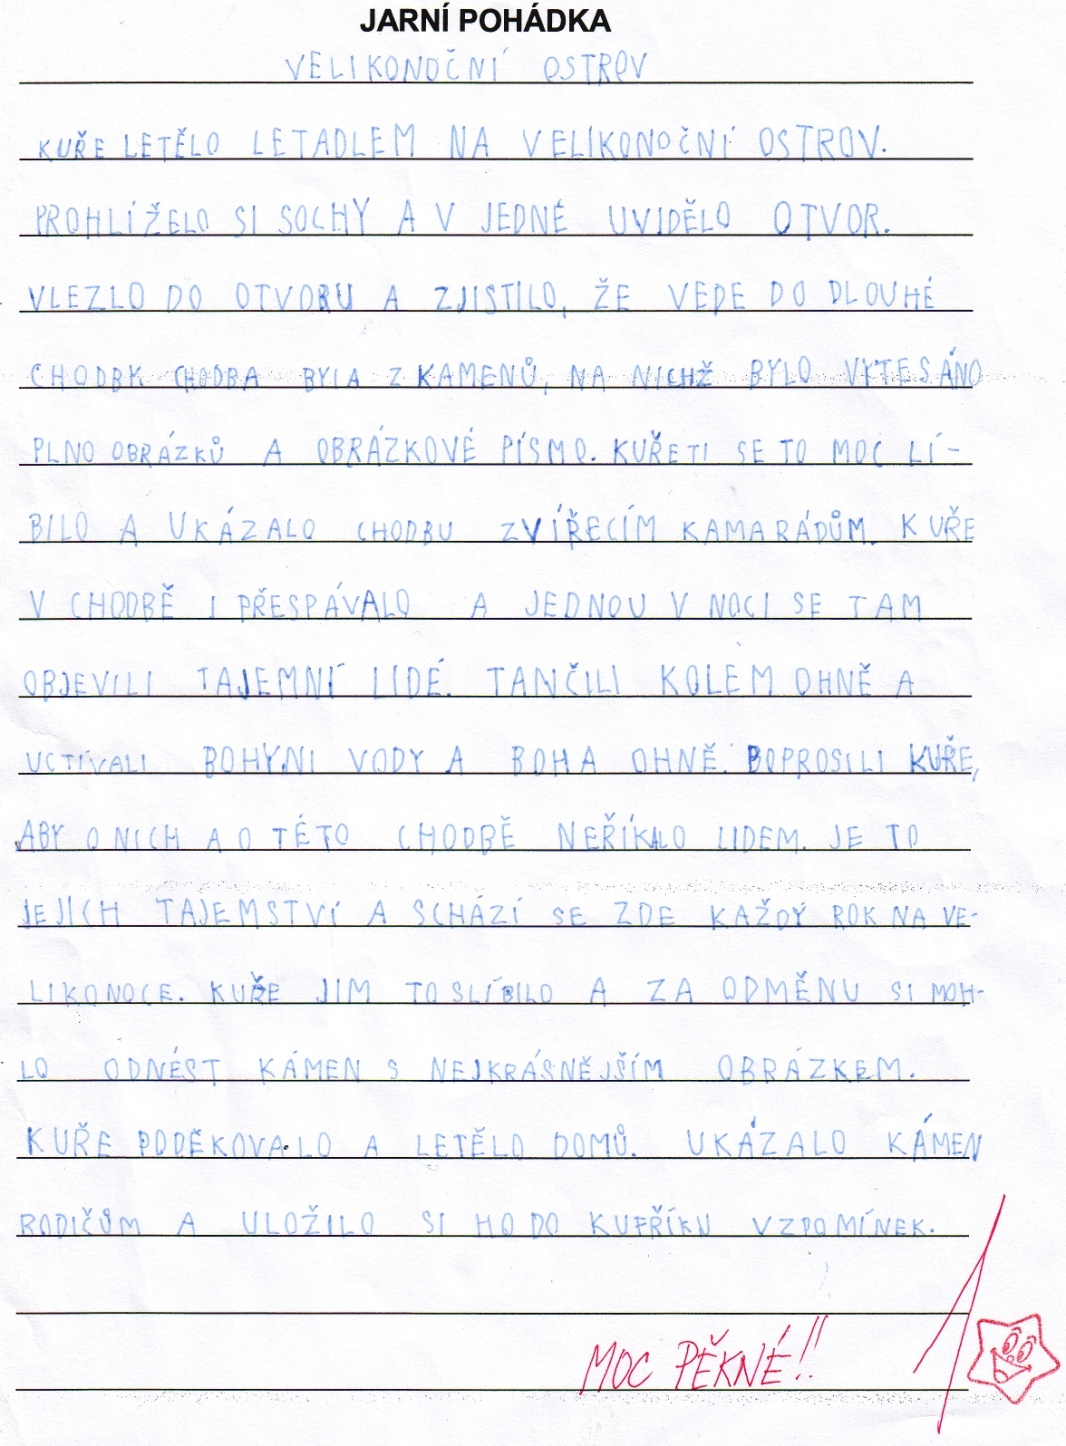 JARNÍ POHÁDKA
VELIKONOČNÍ OSTROV
KUŘE LETĚLO LETADLEM NA VELIKONOČNÍ OSTROV.
PROHLÍŽELO SI SOCHY A V JEDNÉ UVIDĚLO OTVOR.
VLEZLO DO OTVORU A ZJISTILO, ŽE VEDE DO DLOUHÉ
CHODBK CHODBA BYLA Z KAMENŮ, NA NICHŽ BYLO VYTESÁNO
PLNO OBRÁZKŮ A OBRÁZKOVÉ PÍSMO. KUŘETI SE TO MOC LÍ-
BILO A UKÁZALO CHODBU ZVÍŘECÍM KAMARÁDŮM. KUŘE
V CHODBĚ I PŘESPÁVALO A JEDNOU V NOCI SE TAM
OBJEVILI TAJEMNÍ LIDÉ. TANČILI KOLEM OHNĚ A
UCTÍVALI BOHYNI VODY A BOHA OHNĚ. BOPROSILI KUŘE,
ABY O NICH A O TÉTO CHODBĚ NEŘÍKALO LIDEM. JE TO
JEJICH TAJEMSTVÍ A SCHÁZÍ SE ZDE KAŽDÝ ROK NA VE-
LIKONOCE. KUŘE JIM TO SLÍBILO A ZA ODMĚNU SI MOH-
LO ODNÉST KÁMEN S NEJKRÁSNĚJŠÍM OBRÁZKEM.
KUŘE PODĚKOVALO A LETĚLO DOMŮ. UKÁZALO KÁMEN
RODIČŮM A ULOŽILO SI HO DO KUFŘÍKU VZPOMÍNEK.
MOC PĚKNÉ!! 1